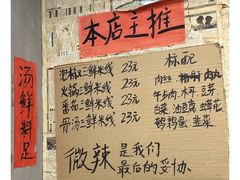 本店主推
汤鲜料足
三鲜米线 23元
火锅三鲜米线 23元
番茄三鲜米线 23元
骨汤三鲜米线 23元
标配
肉丝
木耳 豆芽
油豆腐
鹌鹑蛋 韭菜
微辣是我们
最后的妥协.